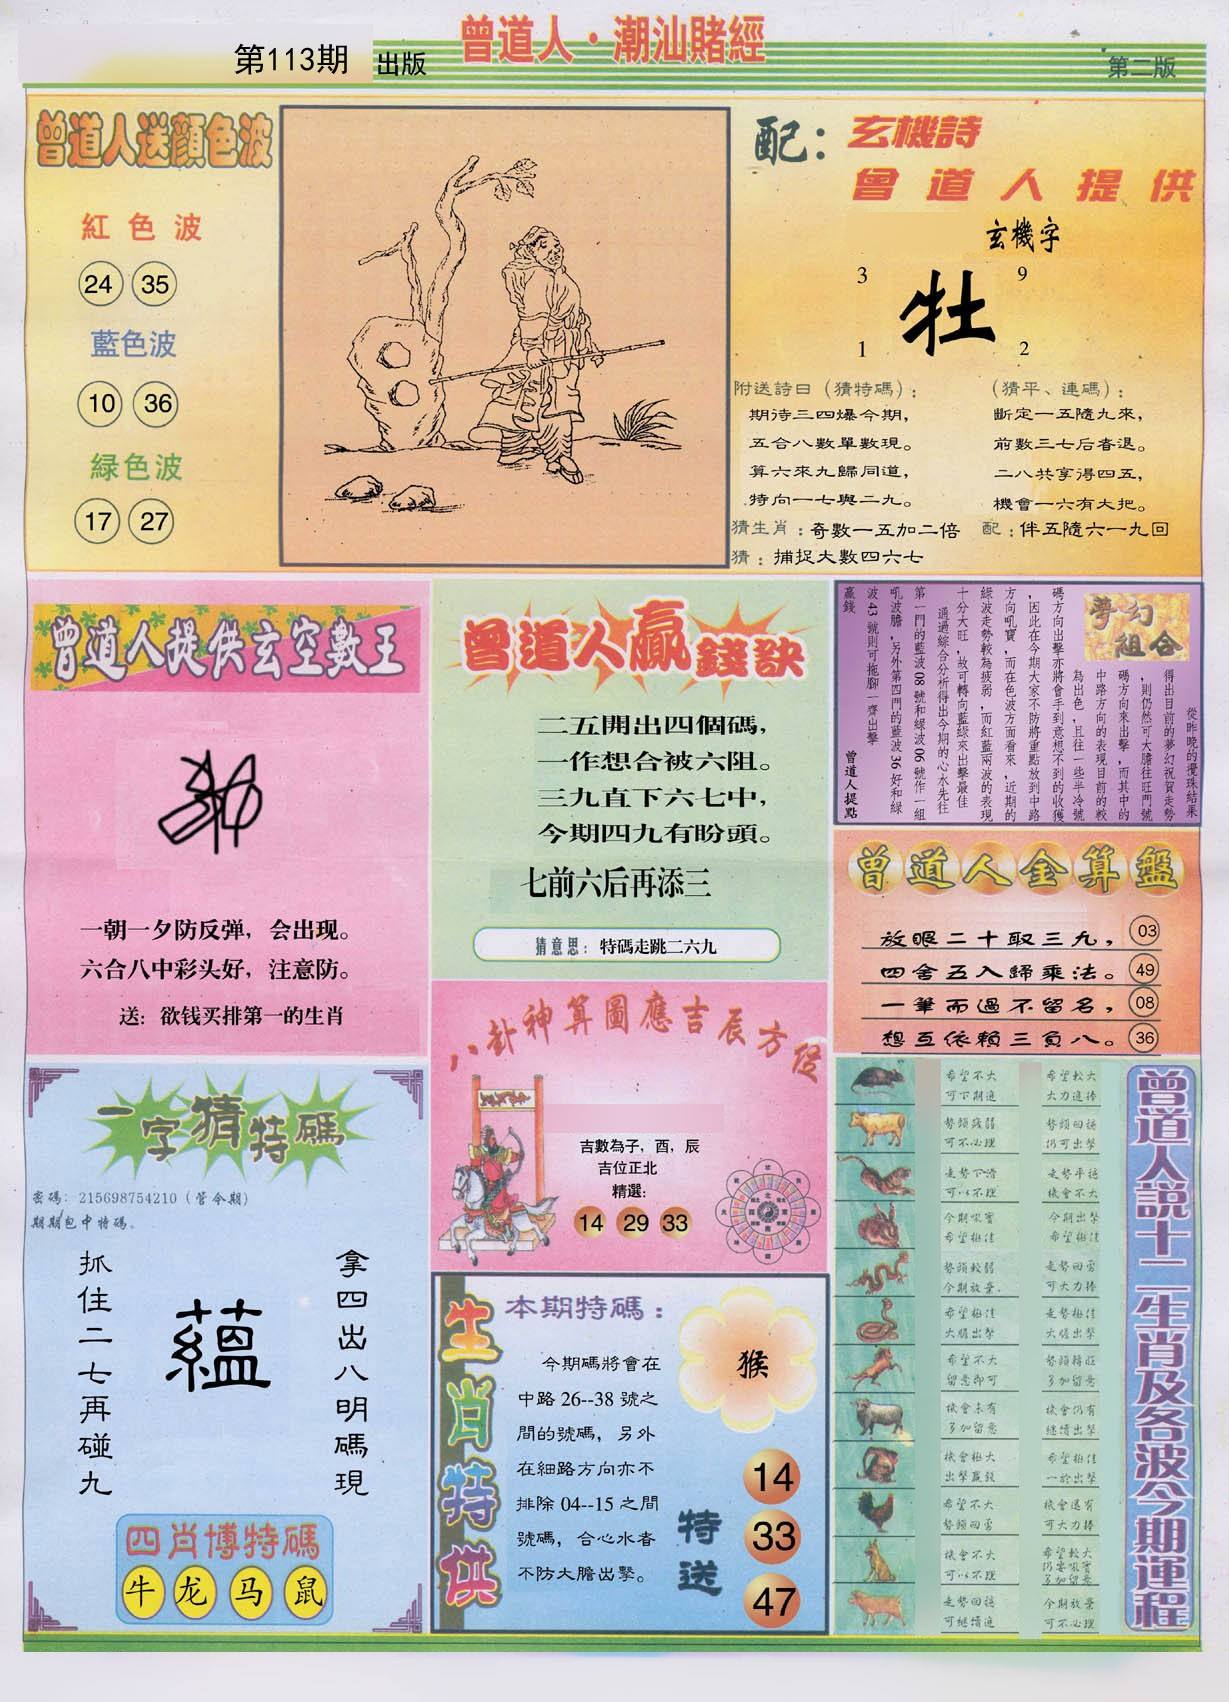 第113期 出版
曾道人·潮汕賭經
第二版
曾道人送顏色波
紅色波
24 35
藍色波
10 36
緑色波
17 27
配：玄機詩
曾道人提供
玄機字
3 9
牡
1 2
附送詩曰（猜特碼）：
期待三四爆今期，
五合八數單數現。
算六來九歸同道，
特向一七與二九。
（猜平、連碼）：
斷定一五隨九來，
前數三七后者退。
二八共享得四五，
機會一六有大把。
猜生肖：奇數一五加二倍
配：伴五隨六一九回
猜：捕捉大數四六七
曾道人提供玄空數王
一朝一夕防反弹，会出现。
六合八中彩头好，注意防。
送：欲钱买排第一的生肖
曾道人贏錢訣
二五開出四個碼，
一作想合被六阻。
三九直下六七中，
今期四九有盼頭。
七前六后再添三
猜意思：特碼走跳二六九
夢幻組合
從昨晚的攪珠結果
得出目前的夢幻祝賀走勢
，則仍然可大膽往旺門號
碼方向來出擊，而其中的
中路方向的表現目前的較
為出色，且往一些半冷號
碼方向出擊亦將會手到意想不到的收獲
，因此在今期大家不防將重點放到中路
方向吼寶，而在色波方面看來，近期的
綠波走勢較為疲弱，而紅藍兩波的表現
十分大旺，故可轉向藍綠來出擊最佳
通過綜合分析得出今期的心水先往
第一門的藍波08號和綠波06號作一組
吼波膽，另外第四門的藍波36好和綠
波43號則可拖腳一齊出擊
贏錢
曾道人提點
曾道人金算盤
放眼二十取三九， 03
四舍五入歸乘法。 49
一筆而過不留名， 08
想互依賴三負八。 36
八卦神算圖應吉辰方位
吉數為子，酉，辰
吉位正北
精選：
14 29 33
一字猜特碼
密碼：215698754210（管今期）
期期包中特碼。
抓住二七再碰九
蘊
拿四出八明碼現
四肖博特碼
牛 龙 马 鼠
生肖特供
本期特碼：
今期碼將會在
中路26--38號之
間的號碼，另外
在細路方向亦不
排除04--15之間
號碼，合心水者
不防大膽出擊。
猴
特送
14
33
47
曾道人説十二生肖及各波今期運程
希望不大
可下期進
希望較大
大力進捧
勢頭殘弱
可不必理
勢頭回穩
仍可出擊
走勢下滑
可以不理
走勢平穩
機會不大
今期吼寶
希望極佳
今期出擊
希望極佳
勢頭較弱
今期放棄.
走勢回勇
可大力捧
希望極佳
大膽出擊
走勢極佳
大膽出擊
希望不大
留意即可
勢頭轉旺
多加留意
機會未有
多加留意
機會仍有
繼續出擊
機會極大
出擊贏錢
希望極佳
一於出擊
希望不大
勢頭回勇
機會還有
可大力捧
機會不大
可以不理
希望較大
仍要吼實
多加留意
走勢回穩
可繼續進
今期放棄
可不必理